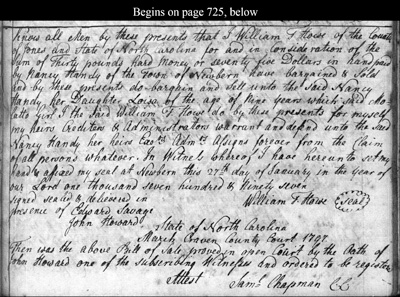 Begins on page 725, below
Know all Men by these presents that I William F Howe of the County
of Jones and State of North Carolina for and in Consideration of the
sum of Thirty pounds hard Money or seventy five Dollars in hand paid
by Nancy Handy of the Town of Newbern have bargained & Sold
and by these presents do bargain and Sell unto the Said Nancy
Handy her Daughter of the age of Nine years which said
girl I the Said William F Howe do by these presents for myself
my heirs Executors & Administrators warrant and defend unto the Said
Nancy Handy her heirs Exors Admrs Assigns forever from the Claim
of all persons whatever. In Witness whereof I have hereunto set my
hand & affixed my seal at Newbern this 27th day of January in the year of
our Lord one thousand seven hundred & Ninety seven
signed sealed & delivered in
William F Howe (Seal)
presence of Edward Savage
John Howard
State of North Carolina
March Craven County Court 1797
Then was the above Bill of Sale proved in open Court by the Oath of
John Howard one of the subscribing Witnesses and ordered to be register
Attest Saml Chapman CC